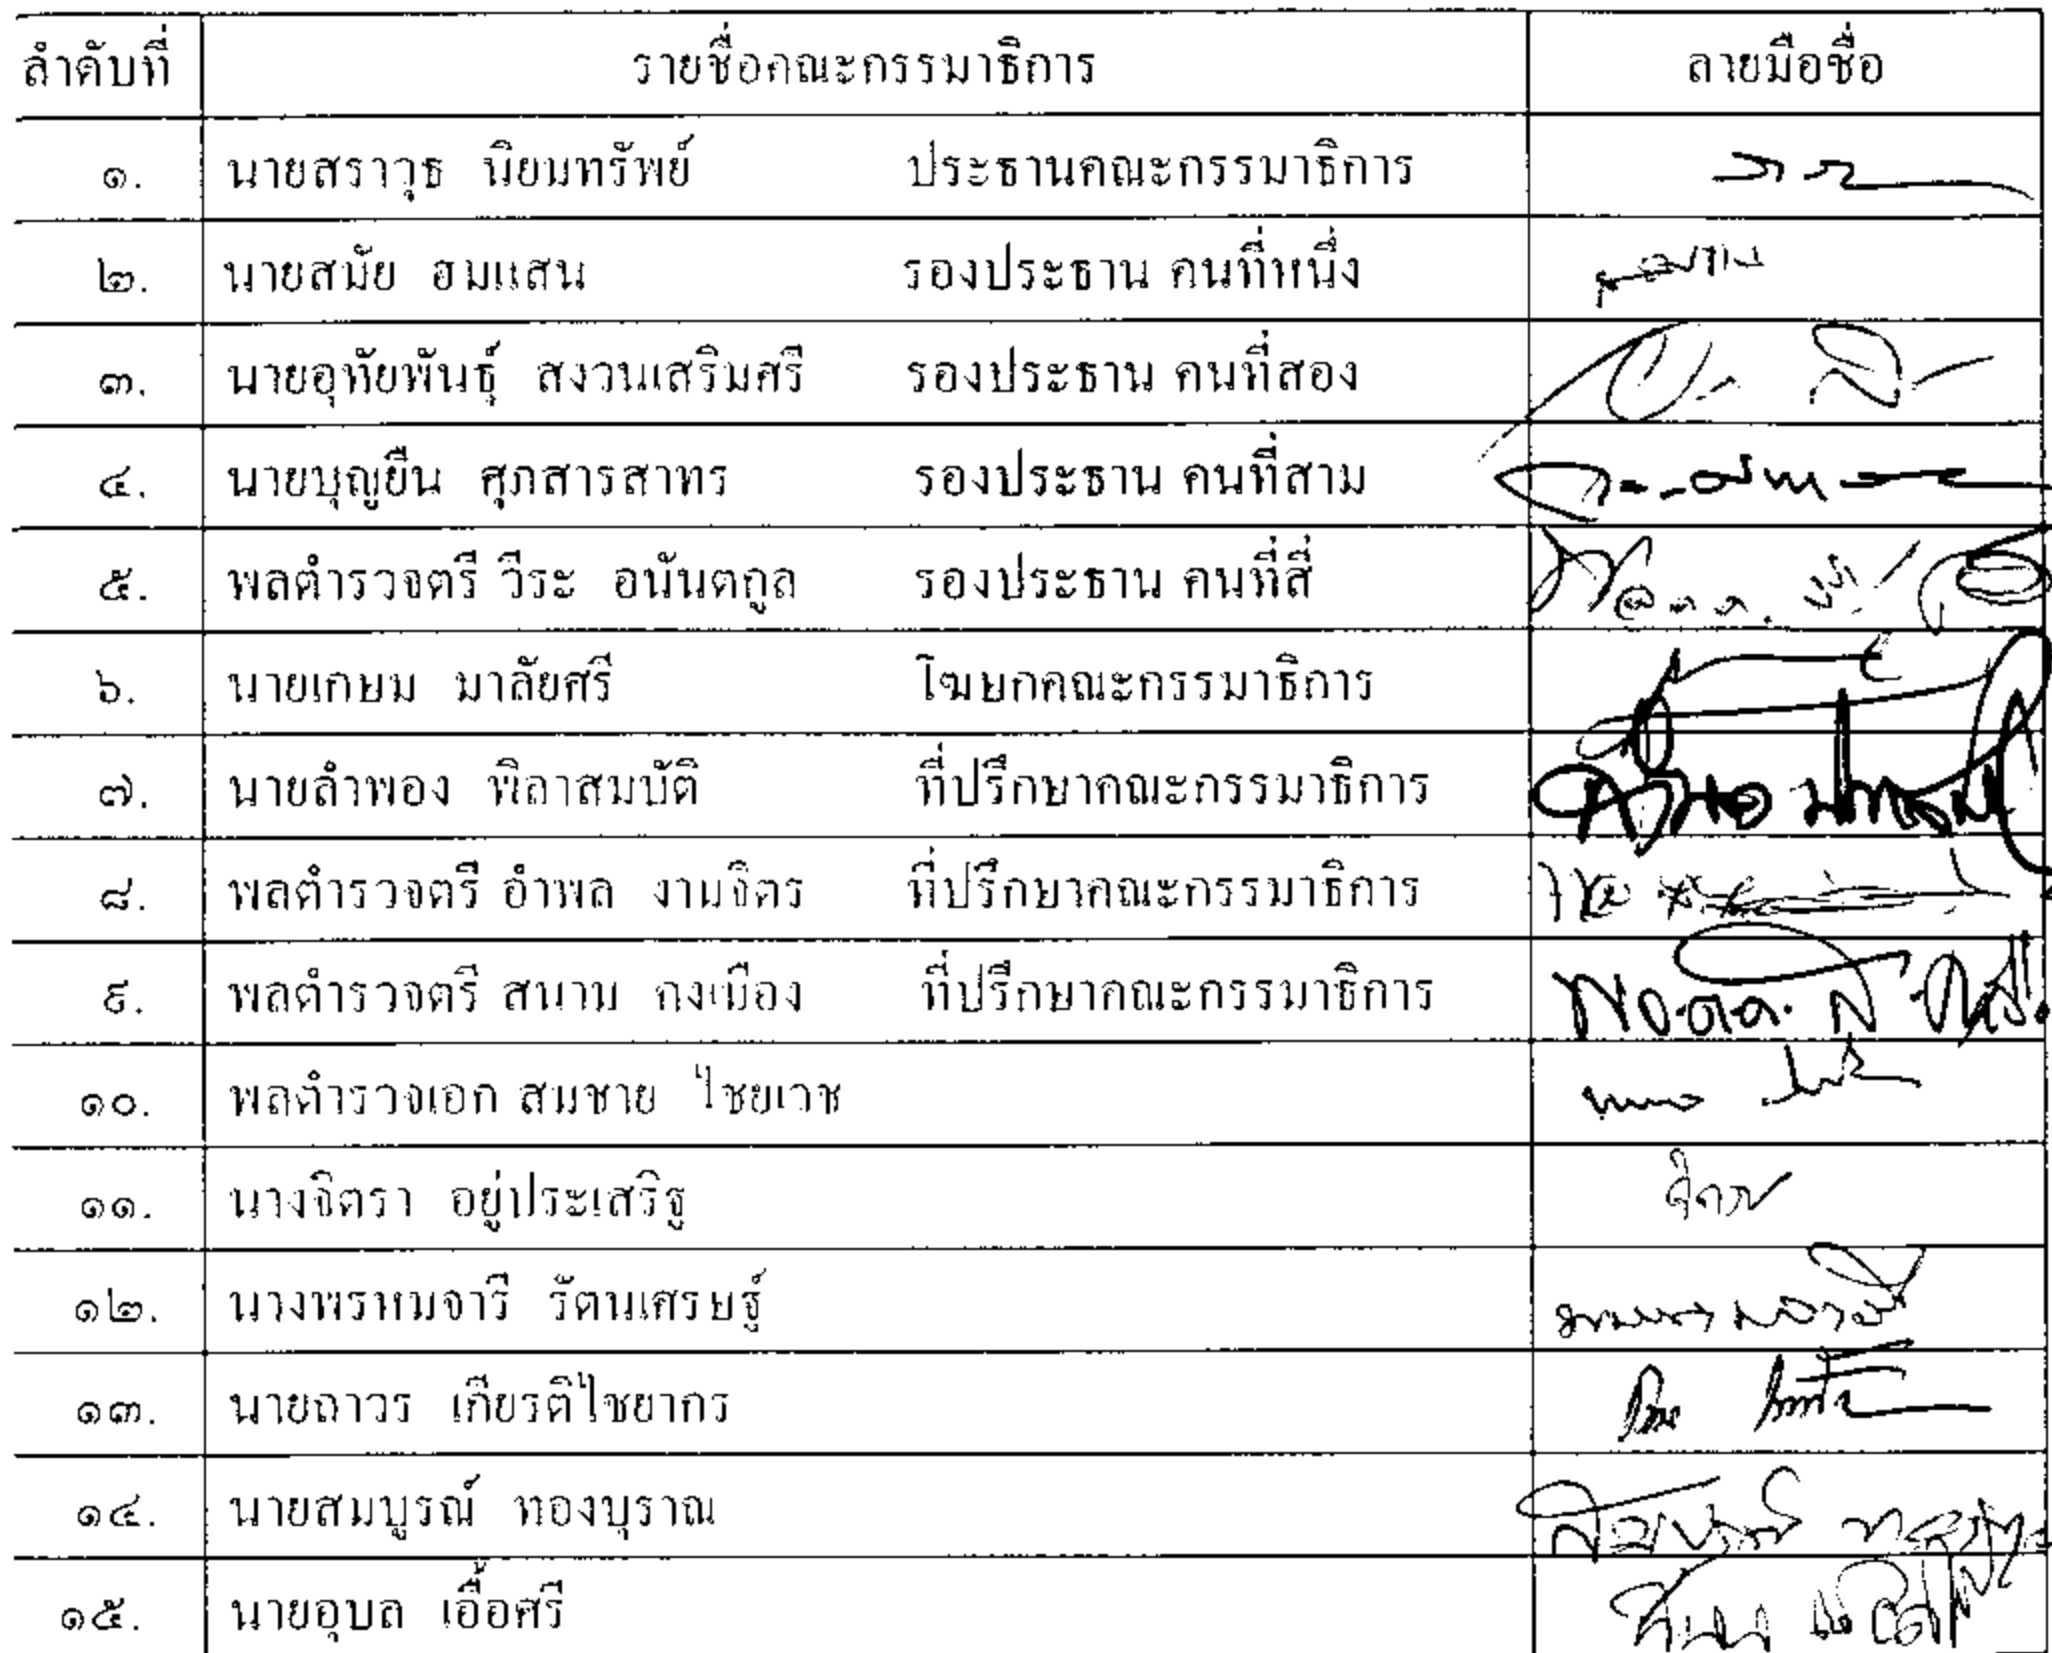 ลำดับที่ รายชื่อคณะกรรมาธิการ ลายมือชื่อ
๑. นายสราวุธ นิยมทรัพย์ ประธานคณะกรรมาธิการ
๒. นายสมัย ฮมแสน รองประธาน คนที่หนึ่ง
๓. นายอุทัยพันธุ์ สงวนเสริมศรี รองประธาน คนที่สอง
๔. นายบุญยืน ศุภสารสาทร รองประธาน คนที่สาม
๕. พลตำรวจตรี วีระ อนันตกูล รองประธาน คนที่สี่
๖. นายเกษม มาลัยศรี โฆษกคณะกรรมาธิการ
๗. นายลำพอง พิลาสมบัติ ที่ปรึกษาคณะกรรมาธิการ
๘. พลตำรวจตรี อำพล งามจิตร ที่ปรึกษาคณะกรรมาธิการ
๙. พลตำรวจตรี สนาม คงเมือง ที่ปรึกษาคณะกรรมาธิการ
๑๐. พลตำรวจเอก สมชาย ไชยเวช
๑๑. นางจิตรา อยู่ประเสริฐ
๑๒. นางพรหมจารี รัตนเศรษฐ์
๑๓. นายถาวร เกียรติไชยากร
๑๔. นายสมบูรณ์ ทองบุราณ
๑๕. นายอุบล เอื้อศรี